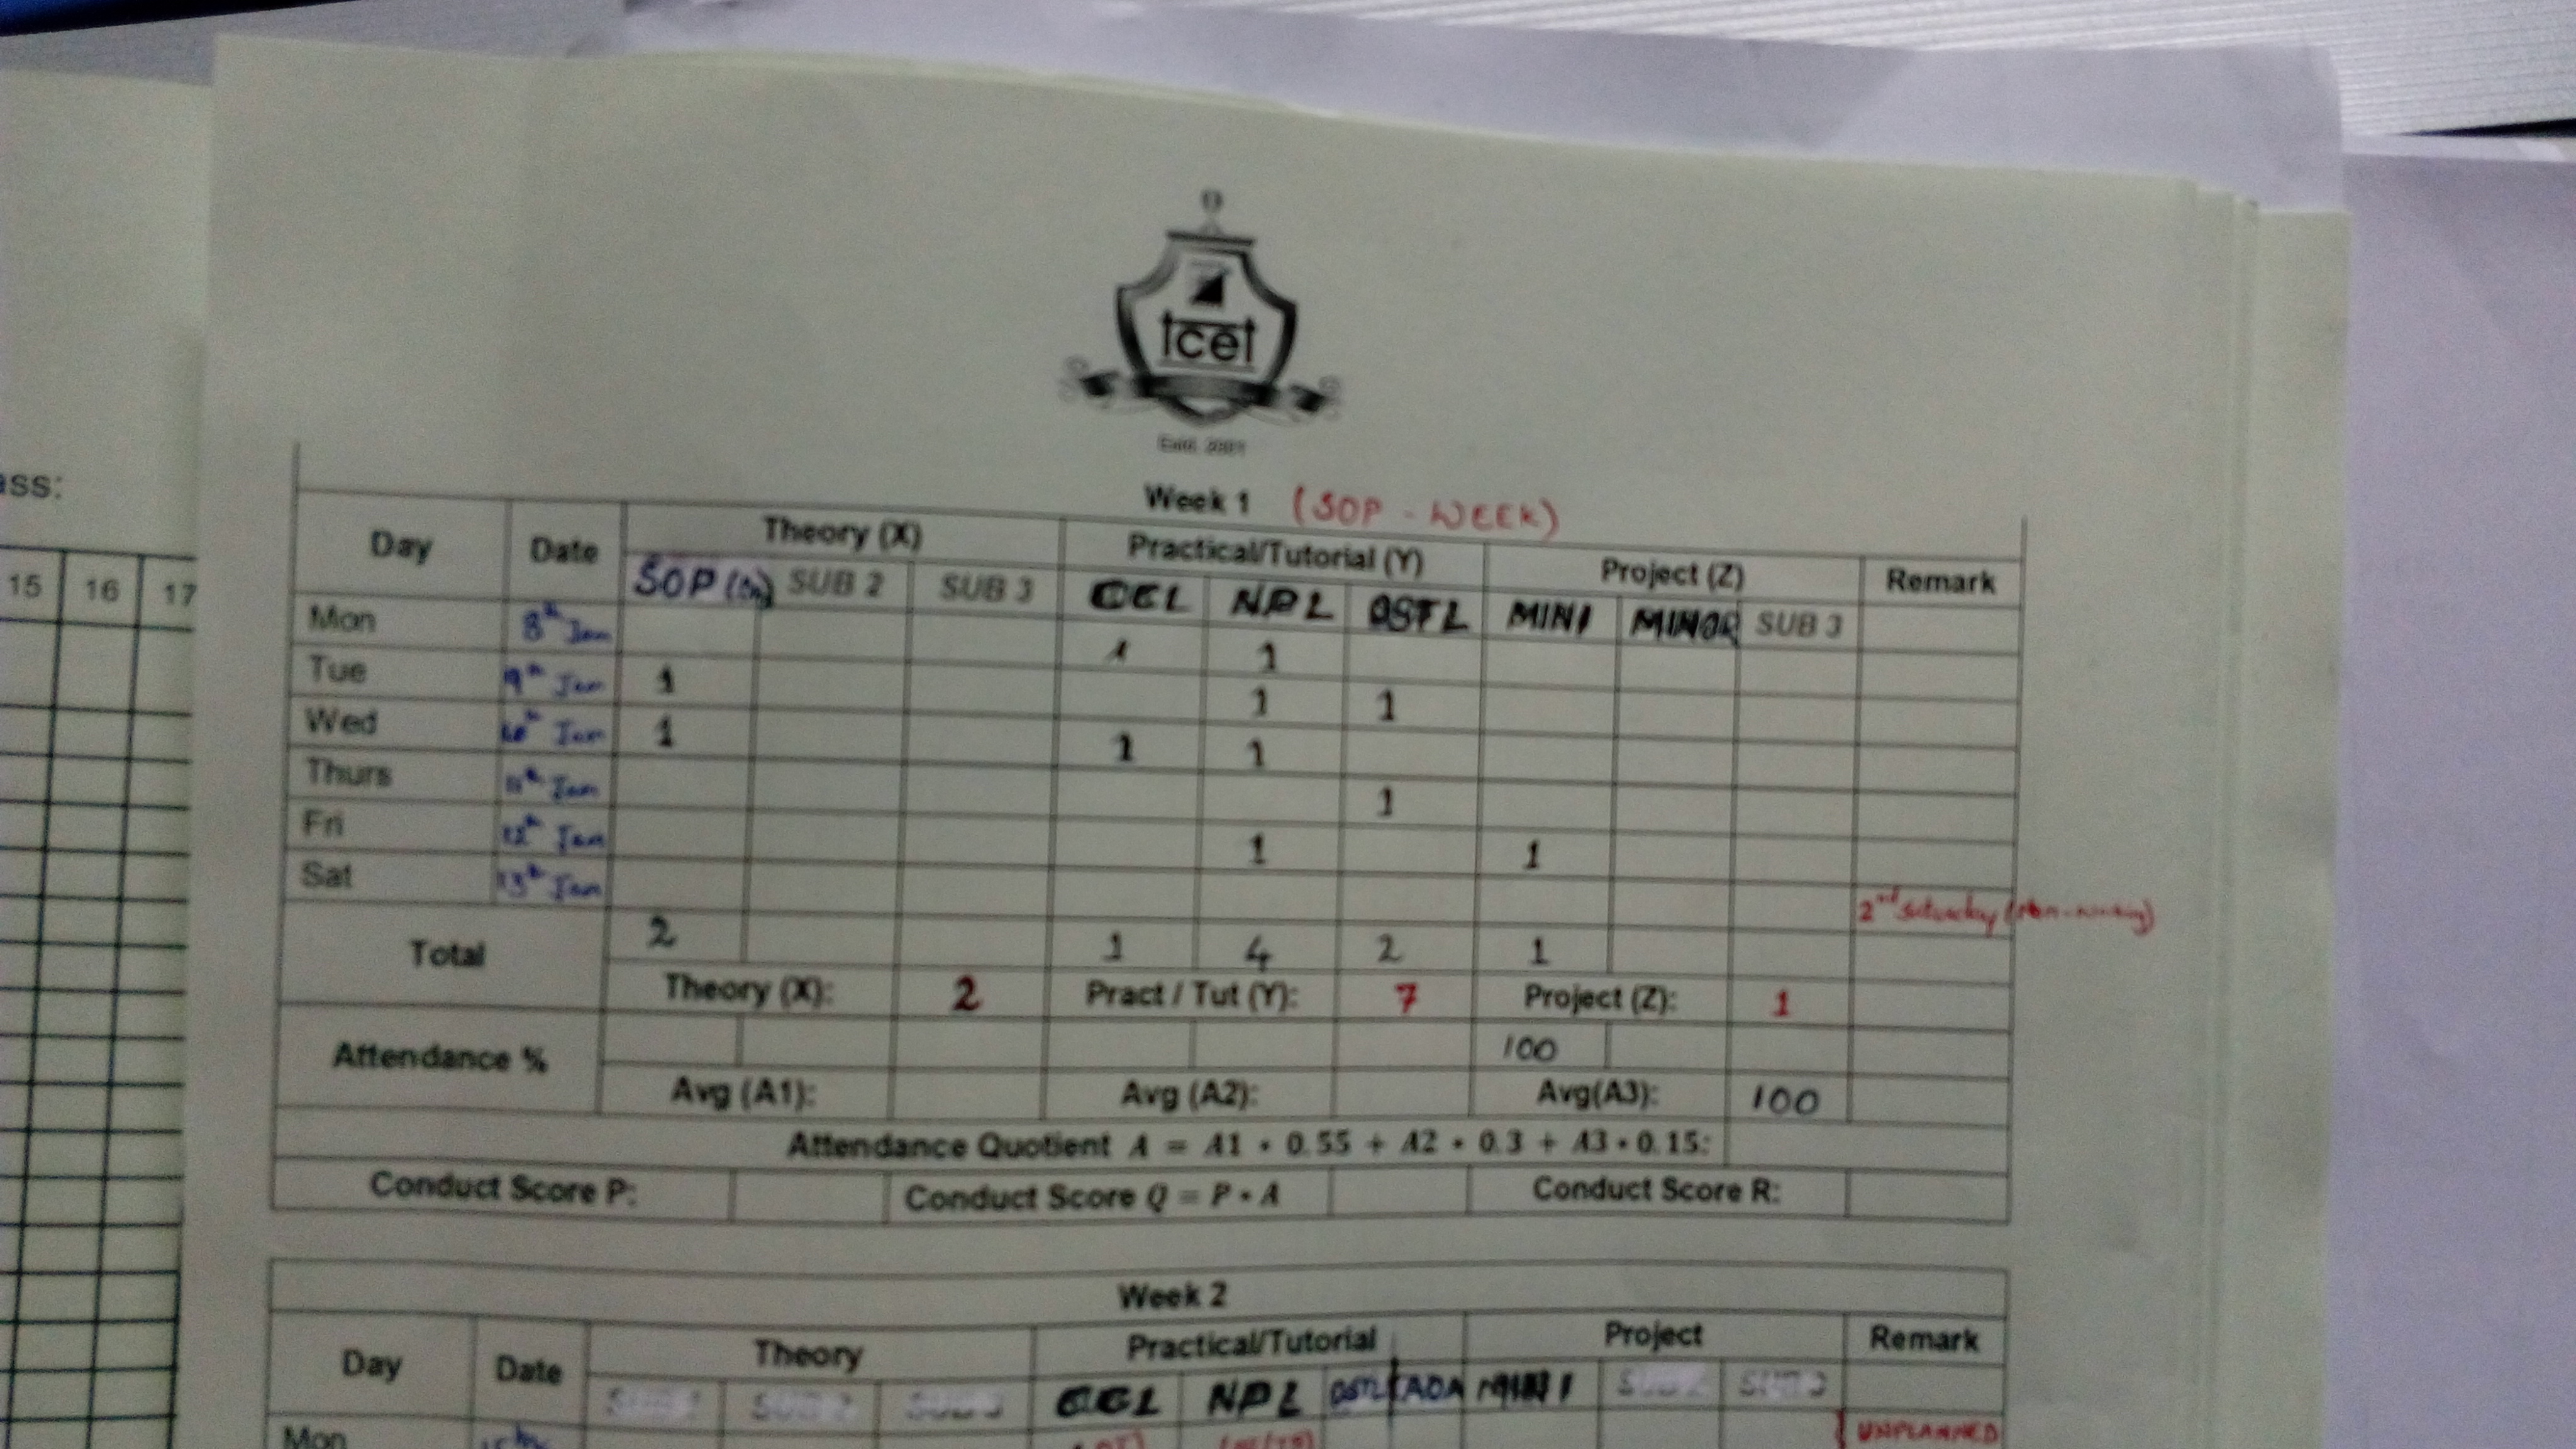 tcet
Estd. 2001
ass:
15 16 17
Week 1 (SOP - WEEK)
Day Date Theory (X) Practical/Tutorial (Y) Project (Z) Remark
SOP SUB 2 SUB 3 CCL NPL OSTL MINI MINOR SUB 3
Mon 8th Jan 1 1
Tue 9th Jan 1 1 1
Wed 10th Jan 1 1 1
Thurs 11th Jan 1
Fri 12th Jan 1 1
Sat 13th Jan 2nd Saturday (Non-working)
Total 2 1 4 2 1
Theory (X): 2 Pract / Tut (Y): 7 Project (Z): 1
Attendance % 100
Avg (A1): Avg (A2): Avg(A3): 100
Attendance Quotient A = A1 * 0.55 + A2 * 0.3 + A3 * 0.15:
Conduct Score P: Conduct Score Q = P * A Conduct Score R:
Week 2
Day Date Theory Practical/Tutorial Project Remark
CCL NPL OSTL AOA MINI
Mon UNPLANNED